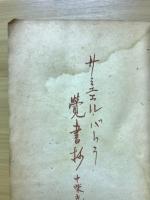 サミユエル・バトラ
覺書抄